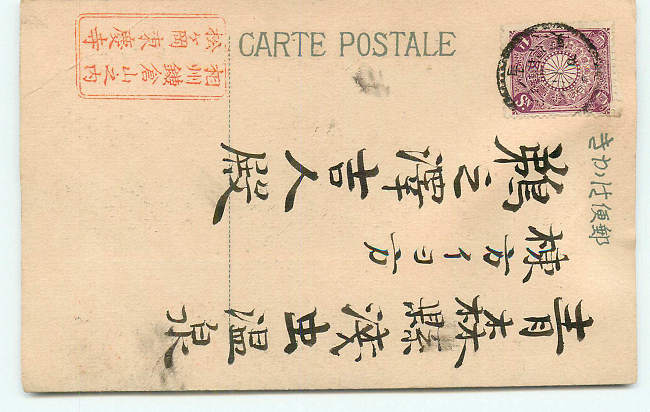 CARTE POSTALE
郵便はかき
青森縣浅虫温泉
棟方イヨ方
鵜之澤吉人殿
相州鎌倉山之内
松ヶ岡東慶寺